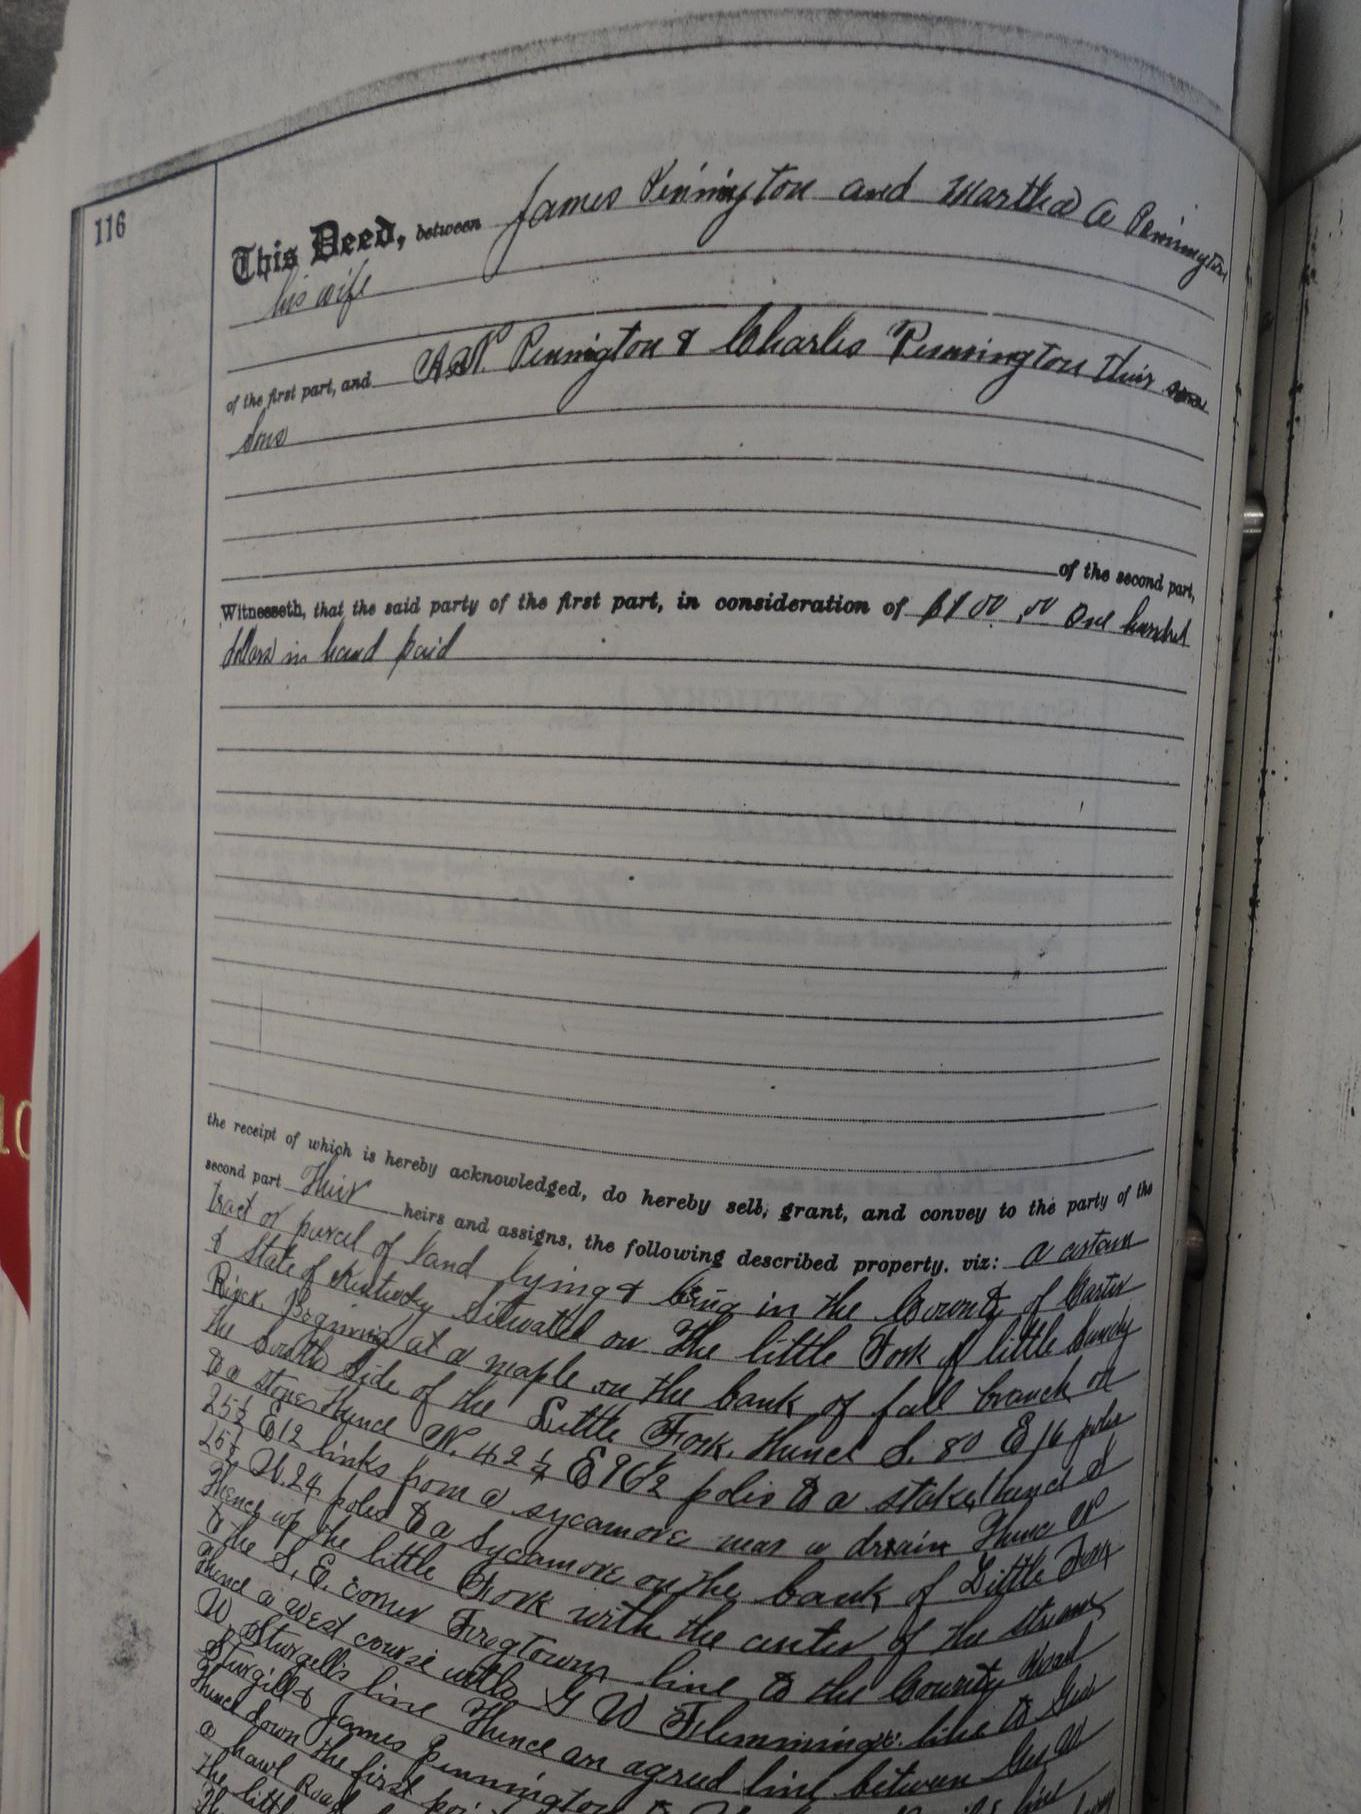 116
This Deed, between James Pennington and Martha A Pennington
his wife
of the first part, and Pennington & Charles Pennington Their
sons
of the second part,
Witnesseth, that the said party of the first part, in consideration of $100.00 One hundred
dollars in hand paid
the receipt of which is hereby acknowledged, do hereby sell, grant, and convey to the party of the
second part Their heirs and assigns, the following described property, viz: A certain
tract or parcel of Land lying & being in the County of Carter
& State of Kentucky Situated on The little Fork of little Sandy
River. Beginning at a maple on the bank of fall branch on
the South Side of the Little Fork. thence S. 80 E 16 poles
to a stone Thence N. 42 1/2 E 96 1/2 poles to a stake thence S
25 1/2 E 12 links from a sycamore near a drain Thence
W. 24 poles to a Sycamore on the bank of Little Fork
Thence up the little Fork with the center of the stream
to the S. E. corner Frogtown line to the County Road
Thence a west course with G W Flemmings line to
W Sturgills line Thence an agreed line between Geo W
Sturgill & James Pennington to line
Thence down the first
a hawl Road
the little